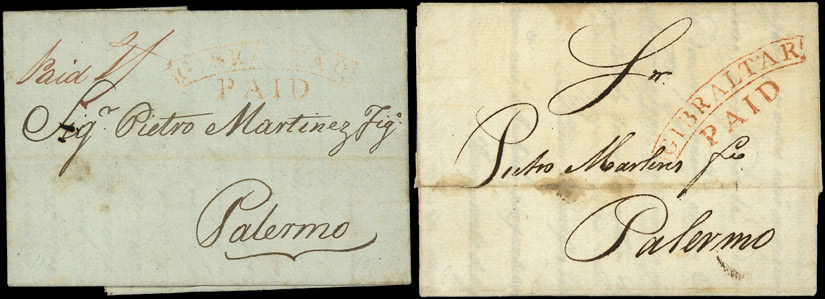 Paid
GIBRALTAR
PAID
Sig.r Pietro Martinez Fig.o
Palermo
GIBRALTAR
PAID
Sr.
Pietro Martinez fo
Palermo